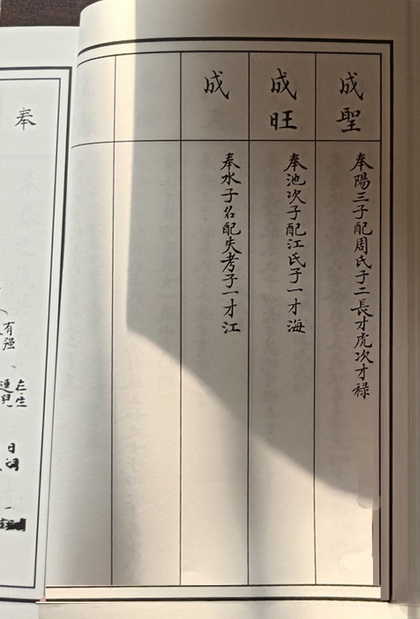 成聖
奉陽三子配周氏子二長才虎次才祿
成旺
奉池次子配江氏子一才海
成
奉水子名配失考子一才江
奉
有强
日